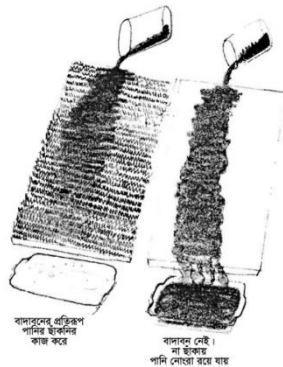 বাদাবনের প্রতিরূপ
পানির ছাঁকনির
কাজ করে
বাদাবন নেই।
না ছাঁকায়
পানি নোংরা রয়ে যায়